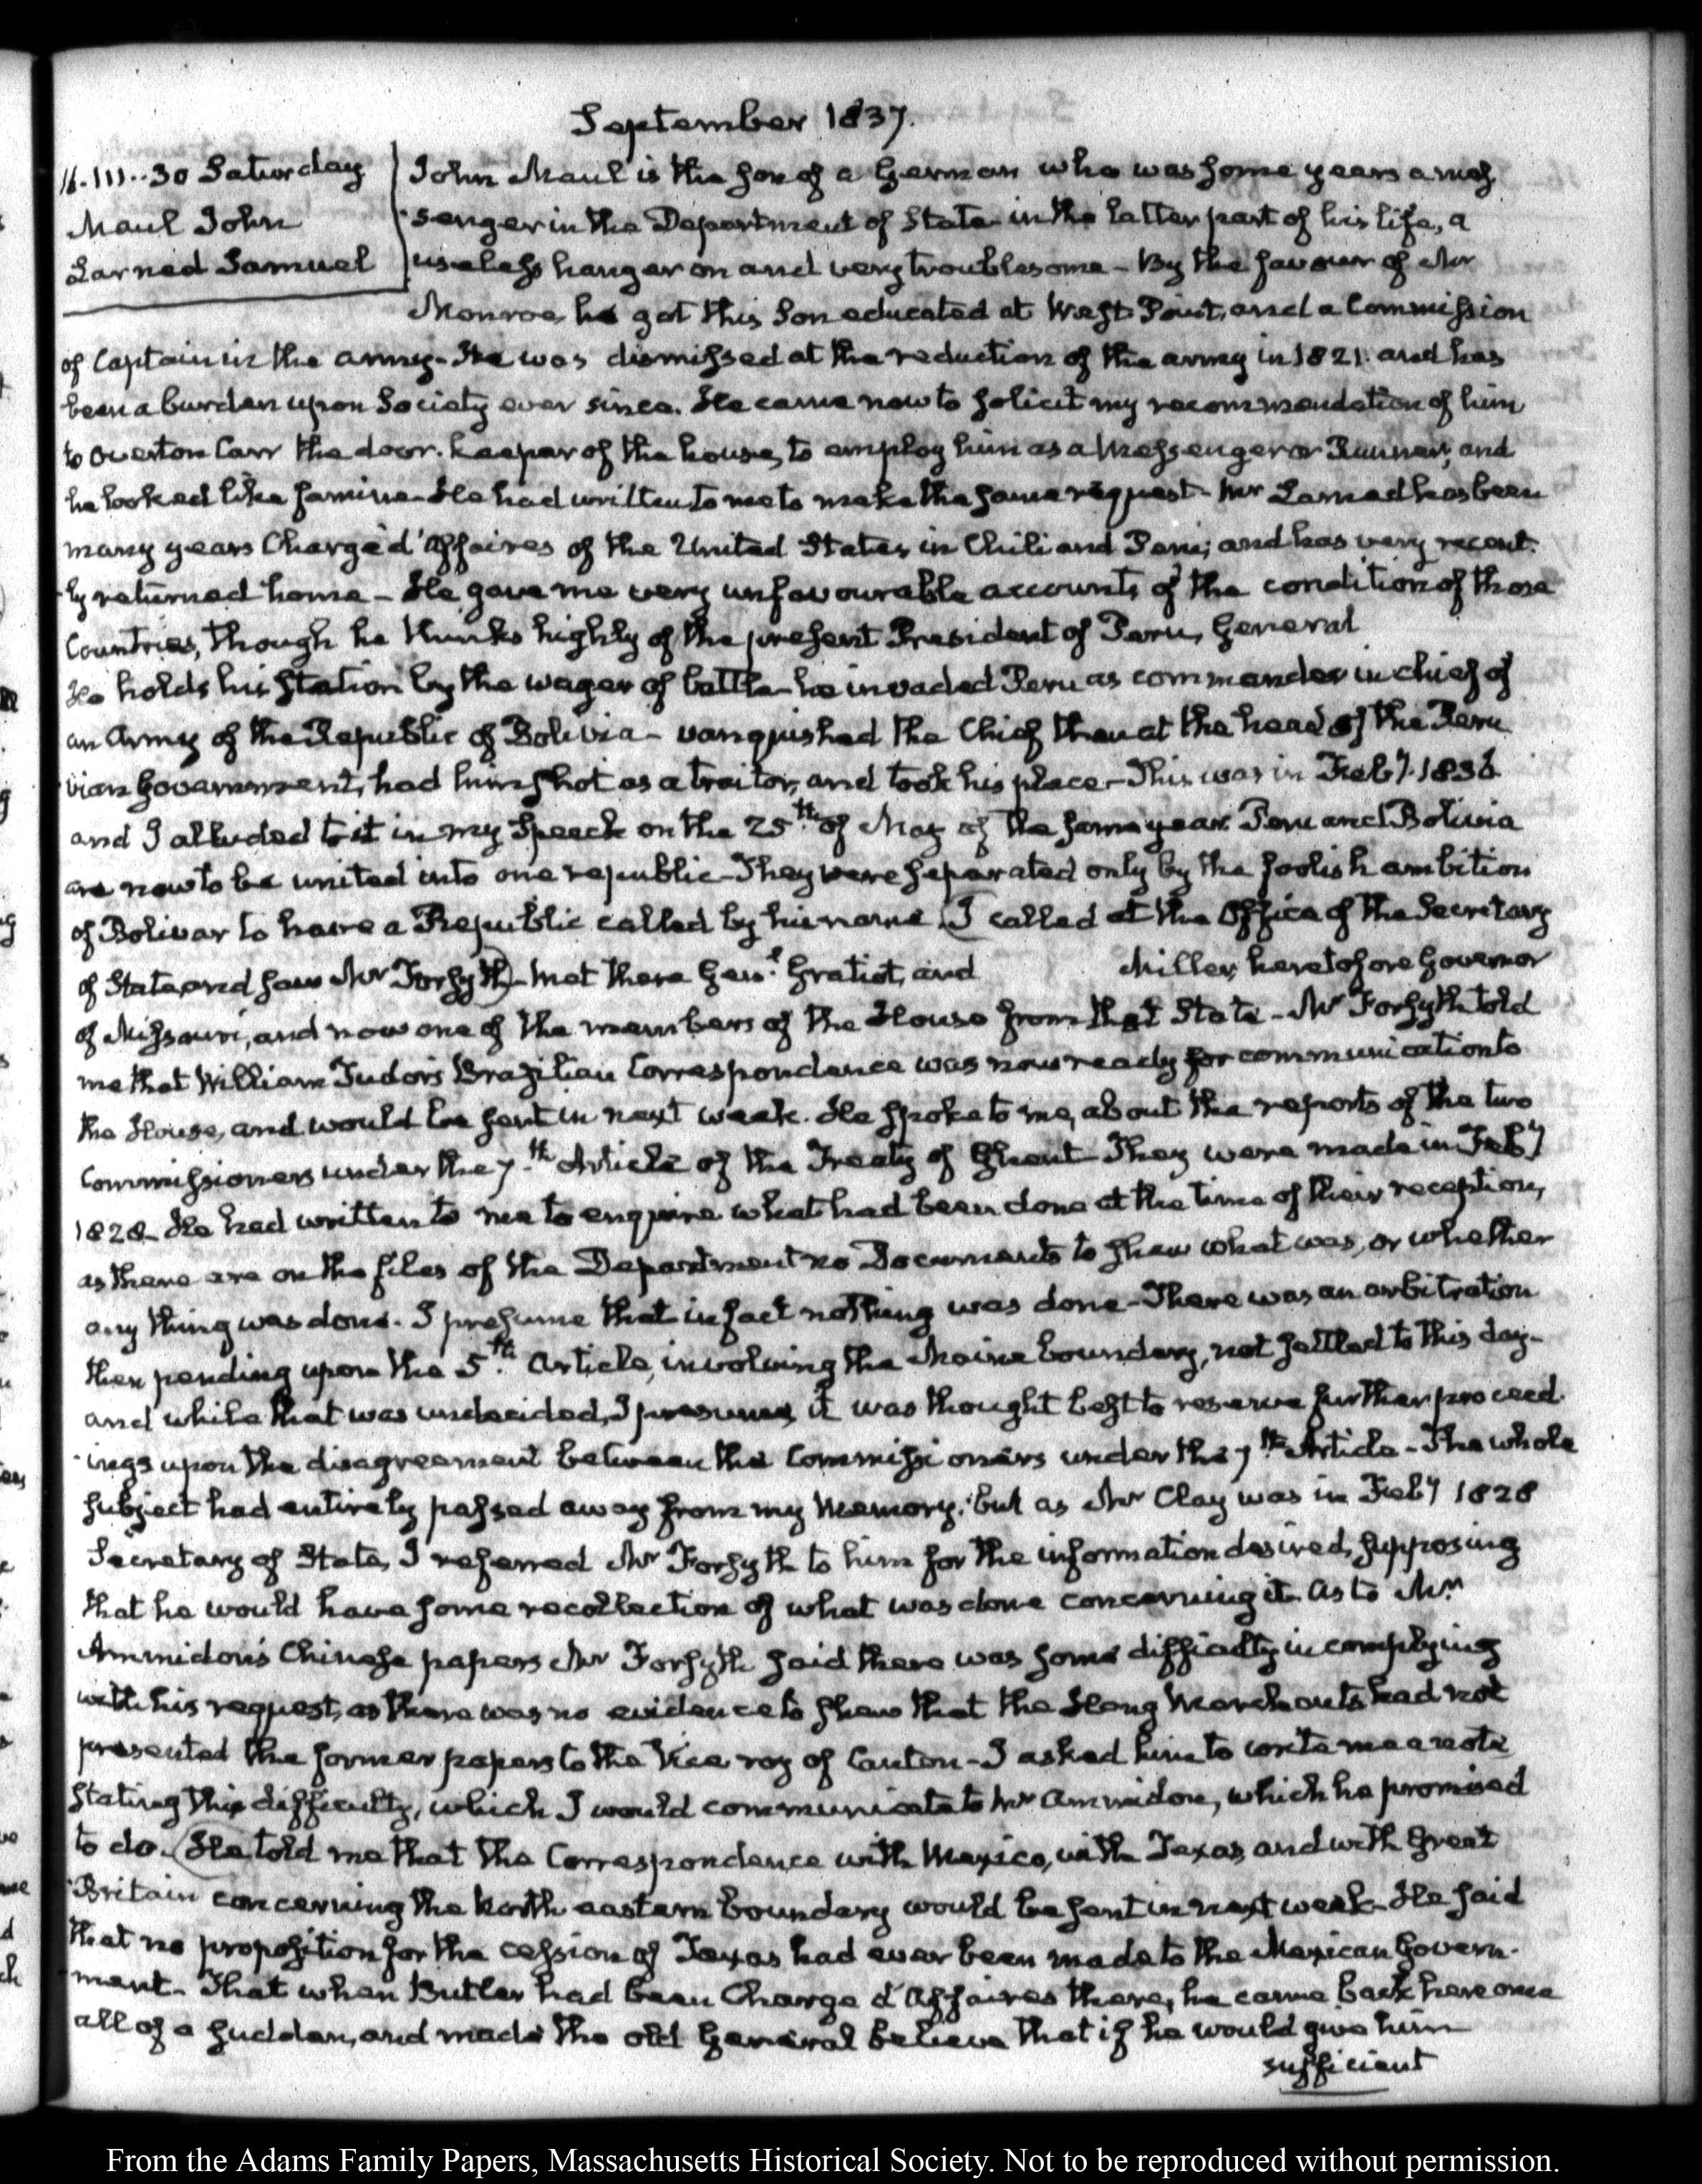 September 1837.
16. III..30 Saturday
Maul John
Larned Samuel
John Maul is the son of a German who was some years a mes-
senger in the Department of State in the latter part of his life, a
useless hanger on and very troublesome - By the favour of Mr
Monroe, he got this Son educated at West-Point, and a Commission
of Captain in the army - He was dismissed at the reduction of the army in 1821. and has
been a burden upon Society ever since. He came now to solicit my recommendation of him
to Overton Carr the door-keeper of the house, to employ him as a Messenger or Runner, and
he looked like famine - He had written to me to make the same request - Mr Larned has been
many years Chargé d'Affaires of the United States in Chili and Peru; and has very recent-
ly returned home - He gave me very unfavourable accounts of the condition of those
Countries, though he thinks highly of the present President of Peru, General
He holds his Station by the wager of battle - he invaded Peru as commander in chief of
an Army of the Republic of Bolivia - vanquished the Chief then at the head of the Peru
vian Government, had him shot as a traitor, and took his place - This was in Feby. 1836
and I alluded to it in my Speech on the 25th. of May of the same year. Peru and Bolivia
are now to be united into one republic - They were separated only by the foolish ambition
of Bolivar to have a Republic called by his name. (I called at the Office of the Secretary
of State, and saw Mr Forsyth) - Met there Genl. Gratiot, and Miller, heretofore Governor
of Missouri, and now one of the members of the House from that State - Mr Forsyth told
me that William Tudor's Brazilian Correspondence was now ready for communication to
the House, and would be sent in next week. He spoke to me, about the reports of the two
Commissioners under the 7th. Article of the Treaty of Ghent - They were made in Feby
1828 - He had written to me to enquire what had been done at the time of their reception,
as there are on the files of the Department no Documents to shew what was, or whether
any thing was done. I presume that in fact nothing was done - There was an arbitration
then pending upon the 5th. Article, involving the Maine boundary, not settled to this day -
and while that was undecided, I presume, it was thought best to reserve further proceed-
ings upon the disagreement between the Commissioners under the 7th. Article - The whole
subject had entirely passed away from my Memory; but as Mr Clay was in Feby 1828
Secretary of State, I referred Mr Forsyth to him for the information desired, supposing
that he would have some recollection of what was done concerning it. As to Mr.
Ammidon's Chinese papers Mr Forsyth said there was some difficulty in complying
with his request, as there was no evidence to shew that the Hong Merchants had not
presented the former papers to the Vice roy of Canton - I asked him to write me a note
stating this difficulty, which I would communicate to Mr Ammidon, which he promised
to do. (He told me that the Correspondence with Mexico, with Texas, and with Great
Britain concerning the North eastern boundary would be sent in next week - He said
that no proposition for the cession of Texas had ever been made to the Mexican Govern-
ment. That when Butler had been Charge d'Affaires there, he came back here once
all of a sudden, and made the old General believe that if he would give him
sufficient
From the Adams Family Papers, Massachusetts Historical Society. Not to be reproduced without permission.